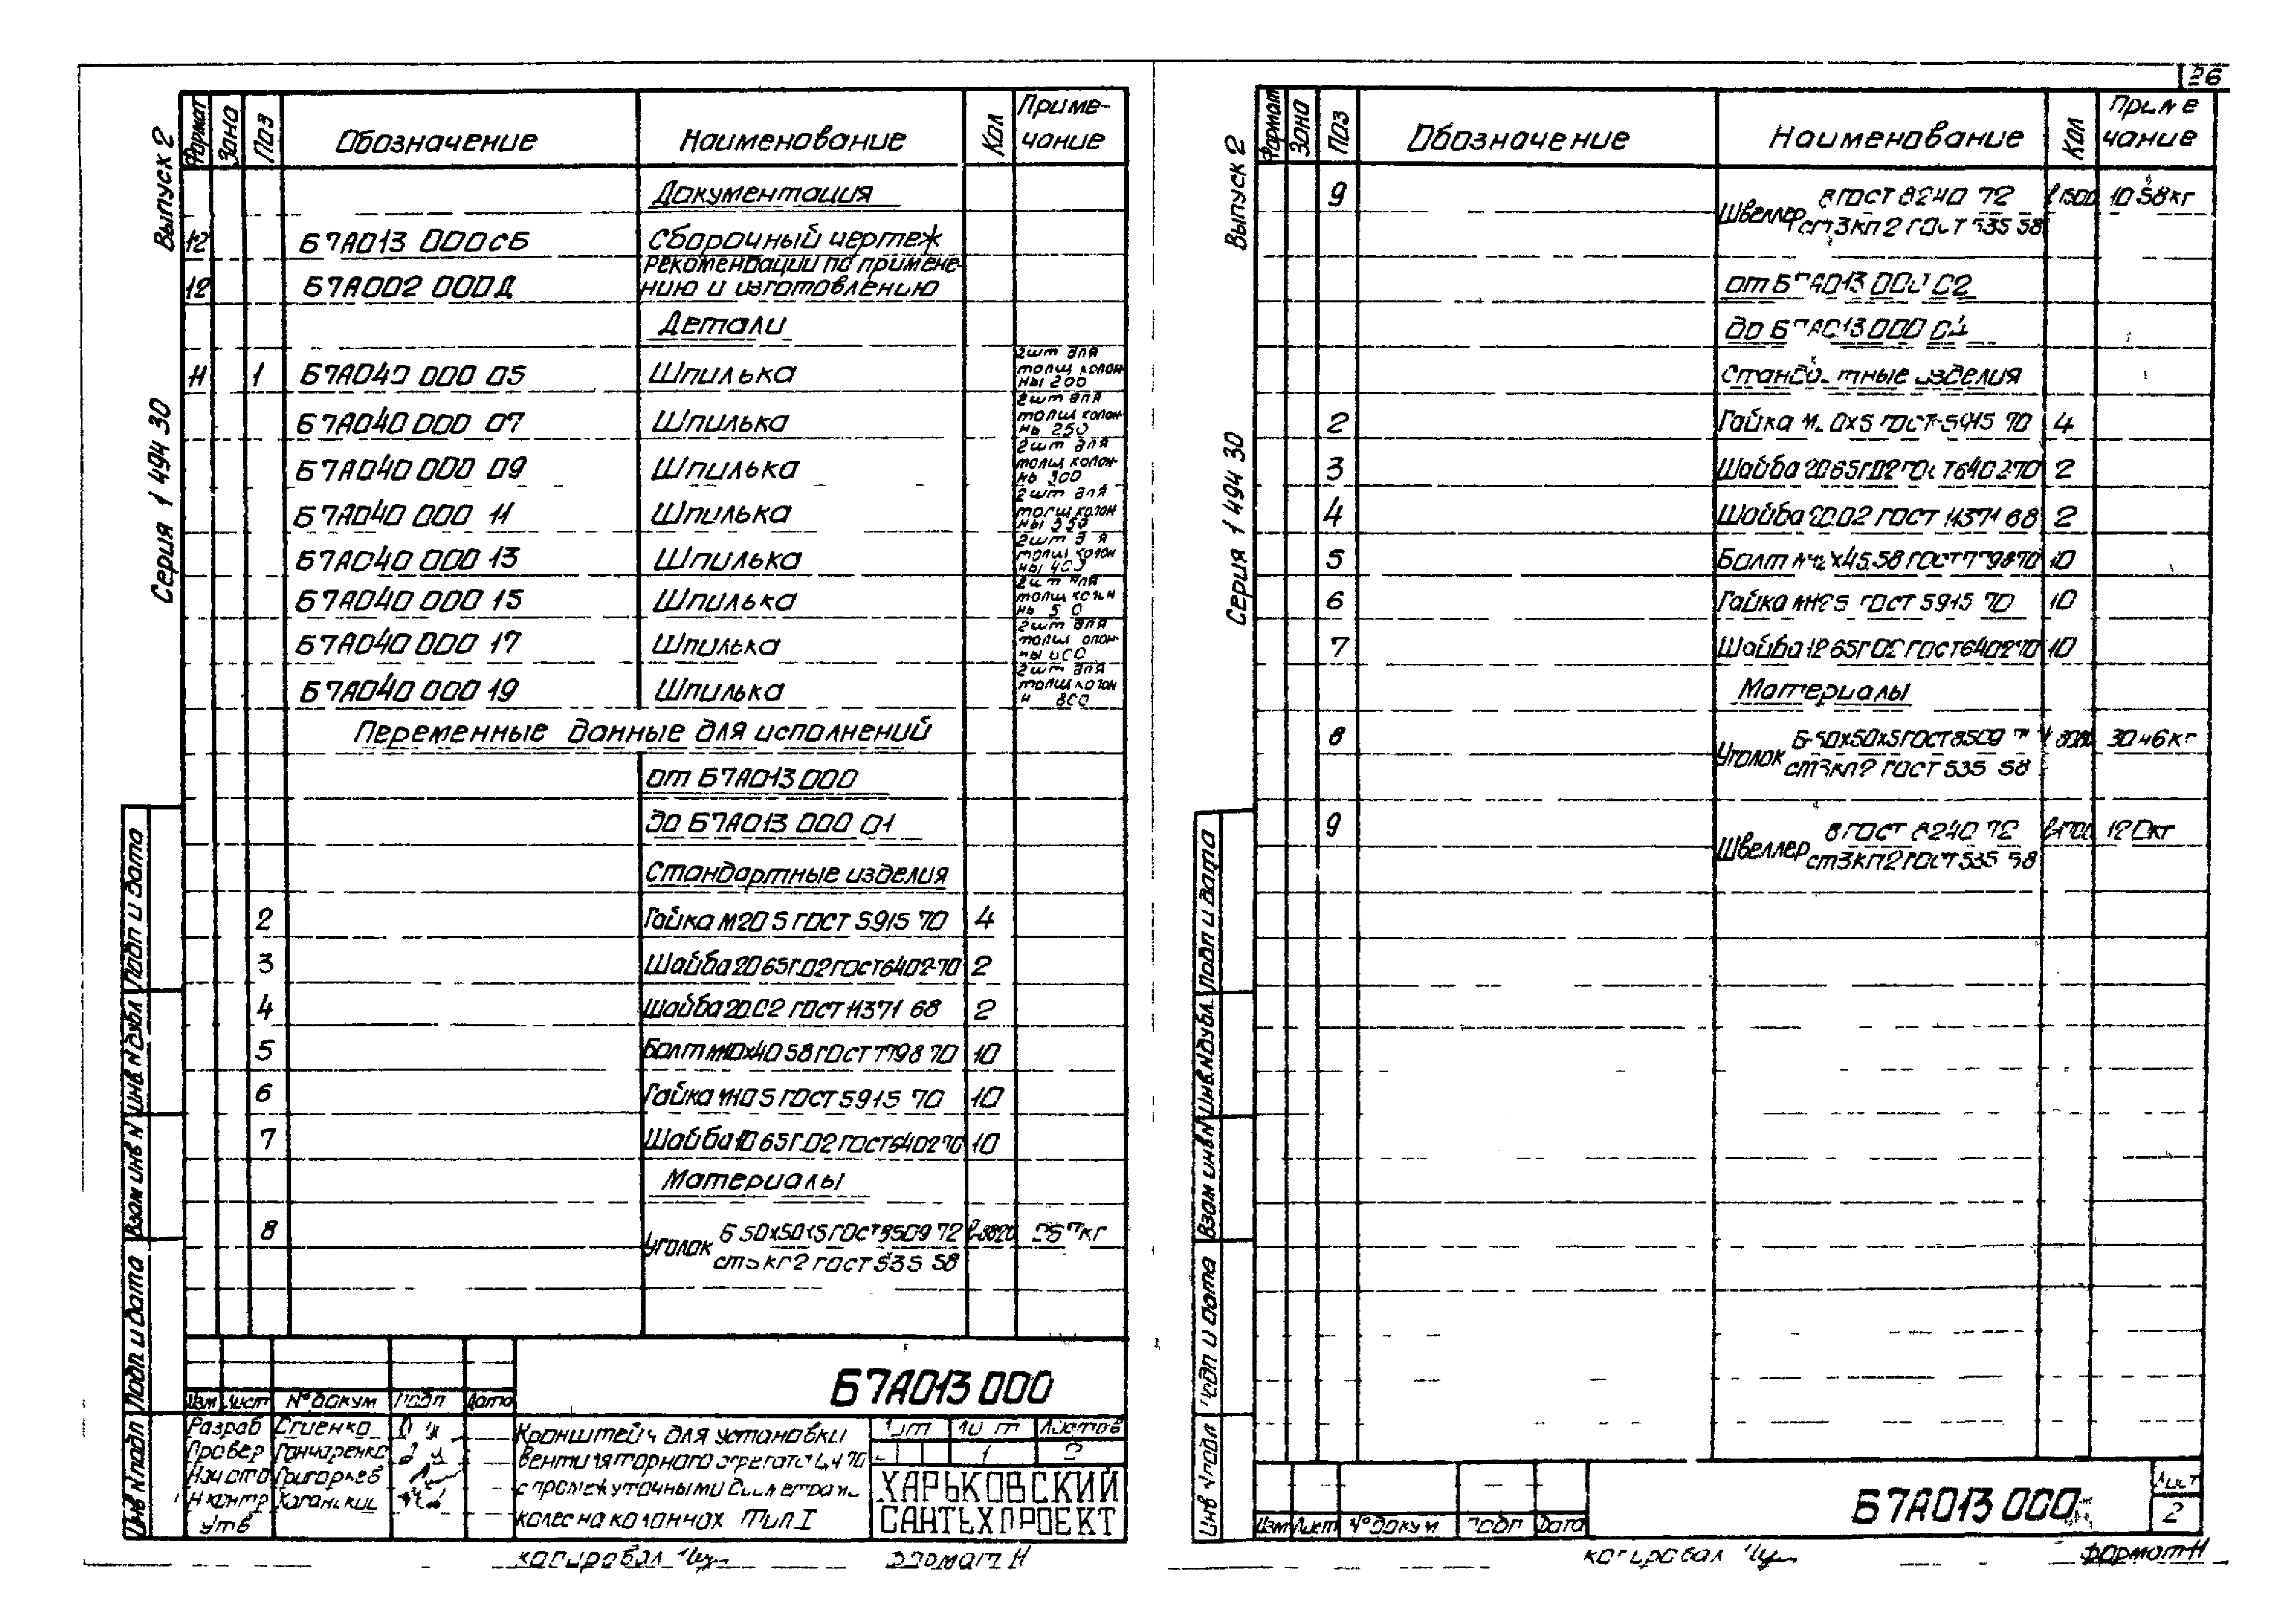 26
Выпуск 2
Серия 1 494 30
Формат Зона Поз Обозначение Наименование Кол Приме-
чание
Документация
12 Б7А013 000СБ Сборочный чертеж
12 Б7А002 000Д Рекомендации по примене-
нию и изготовлению
Детали
11 1 Б7А040 000 05 Шпилька 2шт для
толщ колон
ны 200
Б7А040 000 07 Шпилька 2шт для
толщ колон-
ны 250
Б7А040 000 09 Шпилька 2шт для
толщ колон-
ны 300
Б7А040 000 11 Шпилька 2шт для
толщ колон
ны
Б7А040 000 13 Шпилька 2шт
толщ колон
ны 400
Б7А040 000 15 Шпилька 2шт для
толщ
Б7А040 000 17 Шпилька 2шт для
толщ
Б7А040 000 19 Шпилька 2шт для
толщ колон
Переменные данные для исполнений
от Б7А013 000
до Б7А013 000 01
Стандартные изделия
2 Гайка М20 5 ГОСТ 5915 70 4
3 Шайба 20 65Г.02 ГОСТ 6402-70 2
4 Шайба 20.02 ГОСТ 11371 68 2
5 Болт М10х40 58 ГОСТ 7798 70 10
6 Гайка М10 5 ГОСТ 5915 70 10
7 Шайба 10 65Г.02 ГОСТ 6402 70 10
Материалы
8 Уголок Б 50х50х5 ГОСТ 8509 72
ГОСТ 535 58
Б7А013 000
Изм Лист № докум Подп Дата
Разраб
Провер Гончаренко
Григорьев
Н контр
Утв
Кронштейн для установки
вентиляторного агрегата
с промежуточными диаметрами
колес на колоннах Тип I
Лит Лист Листов
1 2
ХАРЬКОВСКИЙ
САНТЕХПРОЕКТ
Инв N подл Подп и дата Взам инв N Инв N дубл Подп и дата
копировал формат 11
Выпуск 2
Серия 1 494 30
Формат Зона Поз Обозначение Наименование Кол Приме
чание
9 Швеллер 8 ГОСТ 8240 72 10 58кг
ст3кп2 ГОСТ 535 58
от Б7А013 000 02
до Б7А013 000 04
Стандартные изделия
2 Гайка ГОСТ 5915 70 4
3 Шайба 20 65Г.02 ГОСТ 6402 70 2
4 Шайба 20.02 ГОСТ 11371 68 2
5 Болт М12х45.58 ГОСТ 7798 70 10
6 Гайка М12 5 ГОСТ 5915 70 10
7 Шайба 12 65Г 02 ГОСТ 6402 70 10
Материалы
8 Уголок Б-50х50х5 ГОСТ 8509 30 46кг
ст3кп2 ГОСТ 535 58
9 Швеллер 8 ГОСТ 8240 72
ст3кп2 ГОСТ 535 58
Инв N подл Подп и дата Взам инв N Инв N дубл Подп и дата
Изм Лист № докум Подп Дата
Б7А013 000
Лист
2
копировал формат 11